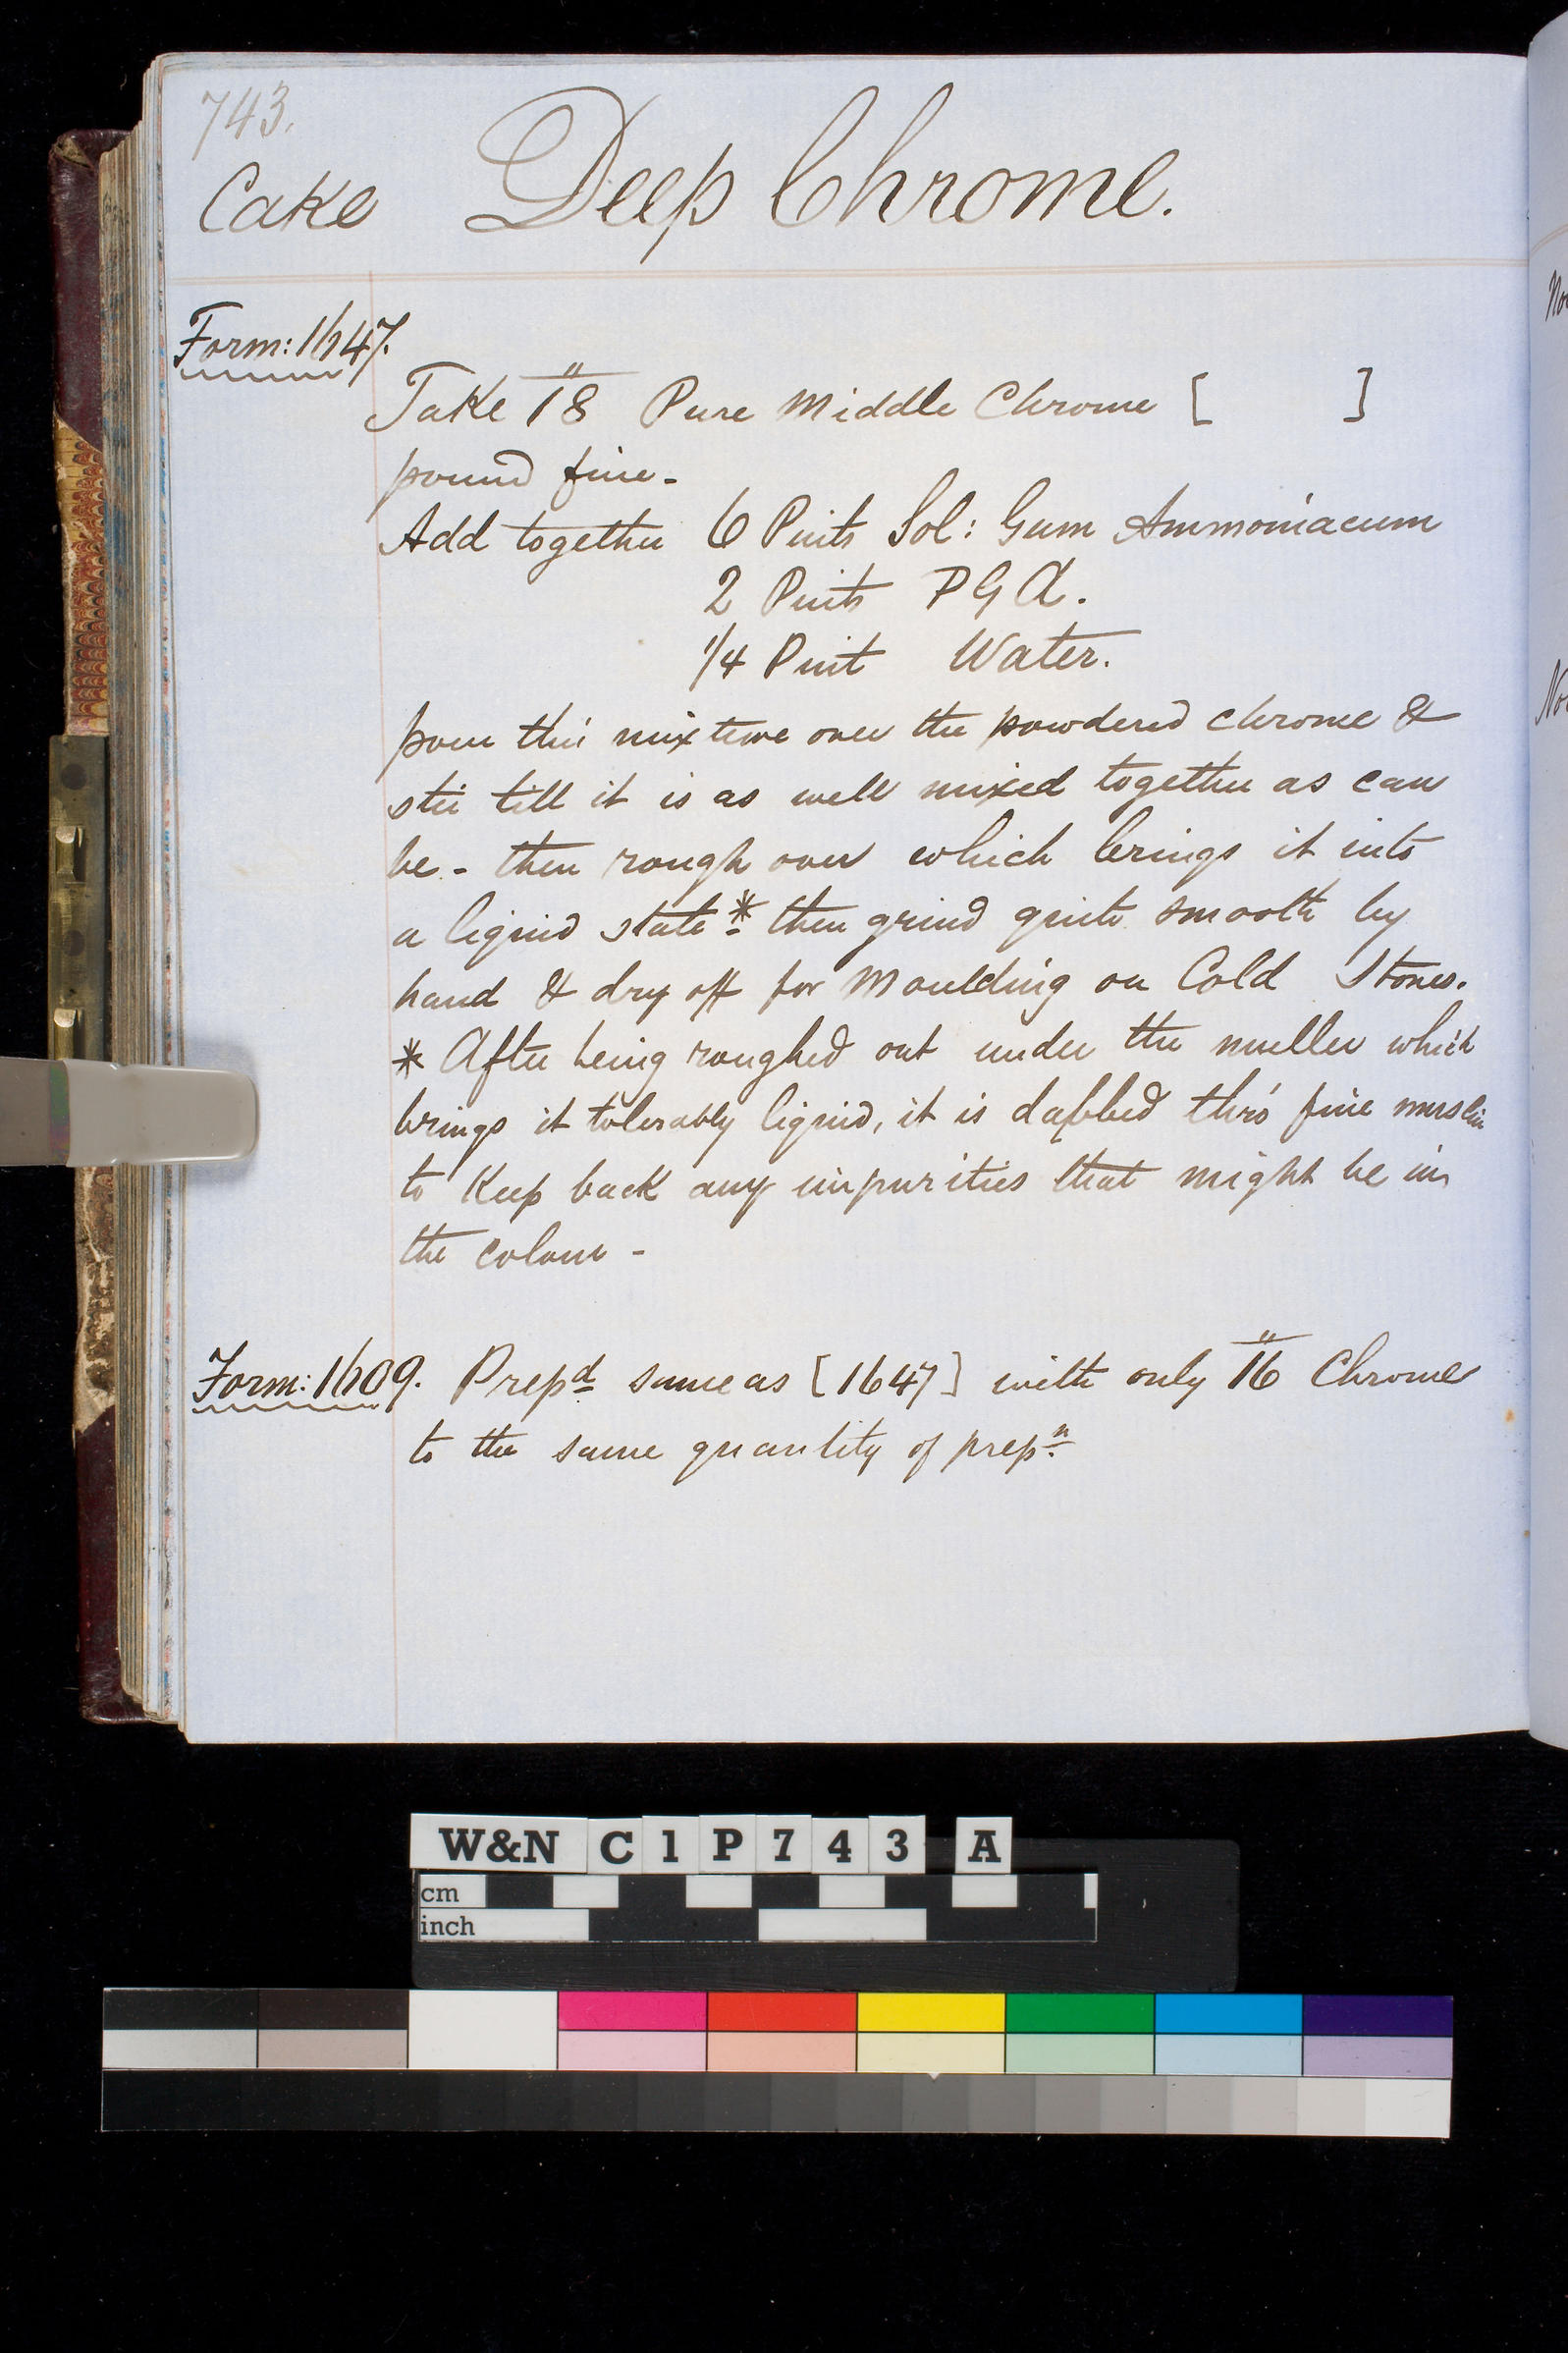 743.
Cake Deep Chrome.
Form: 1647.
Take 18" Pure Middle Chrome [ ]
pound fine -
Add together 6 Pints Sol: Gum Ammoniacum
2 Pints P G A.
1/4 Pint Water.
pour this mixture over the powdered chrome &
stir till it is as well mixed together as can
be - then rough over which brings it into
a liquid state * then grind quite smooth by
hand & dry off for Moulding on Cold Stones.
* After being roughed out under the muller which
brings it tolerably liquid, it is dabbed thro' fine muslin
to Keep back any impurities that might be in
the colour -
Form: 1609. Prepd same as [1647] with only 16" Chrome
to the same quantity of prepn
No
W&N C 1 P 7 4 3 A
cm
inch